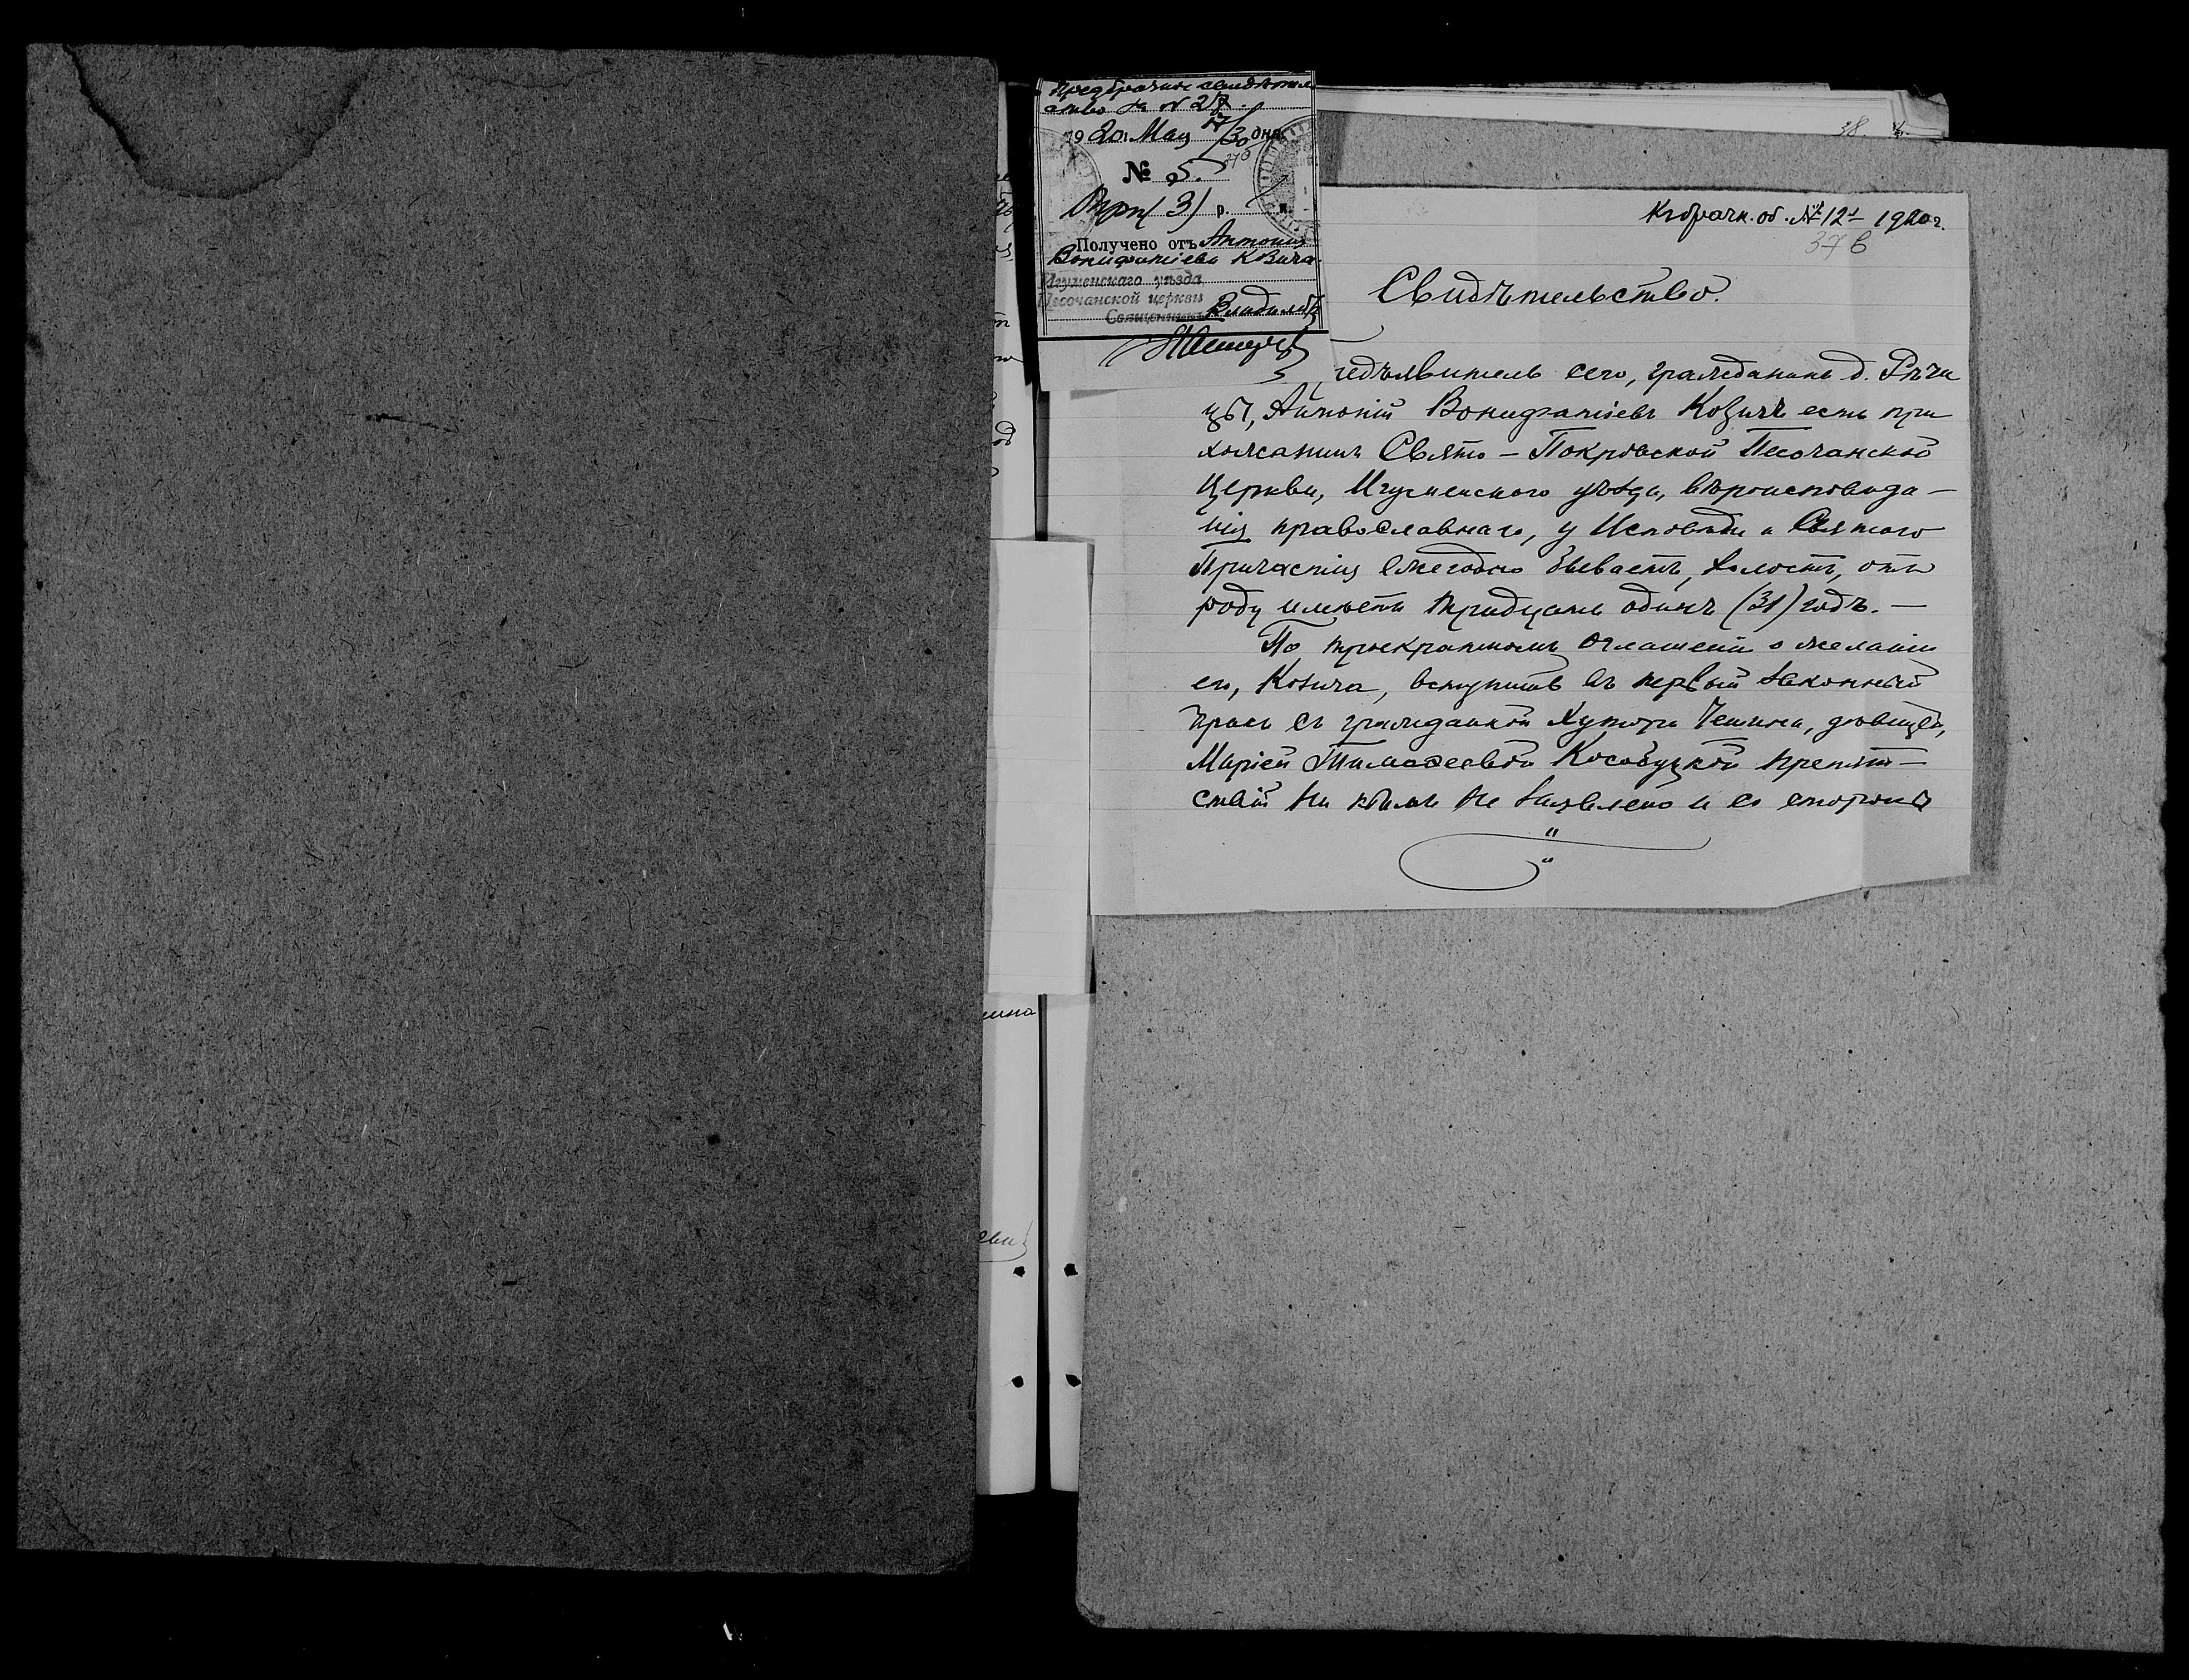 Предбрачное свидѣтель
ство за № 27.
1920 г. Мая 17/30 дня.
№ 5.
Три (3) р. к.
Получено отъ Антонія
Вонифатіева Козича
Игуменскаго уѣзда
Песочанской церкви
Священникъ Владиміръ
38.
Къ брачн. об. № 12 1920 г.
37б
Свидѣтельство.
редъявитель сего, гражданинъ д. Рѣчи
цы, Антоній Вонифатіевъ Козичъ есть при
хожанинъ Свято-Покровской Песочанской
церкви, Игуменскаго уѣзда, вѣроисповѣда-
нія православнаго, у Исповѣди и Святого
Причастія ежегодно бываетъ, холостъ, отъ
роду имѣетъ тридцать одинъ (31) годъ. —
По троекратномъ оглашеніи о желаніи
его, Козича, вступить въ первый законный
бракъ съ гражданкой хутора Чешина, дѣвицей,
Маріей Тимоѳеевой Кособуцкой препят-
ствій ни кѣмъ не заявлено и со стороны